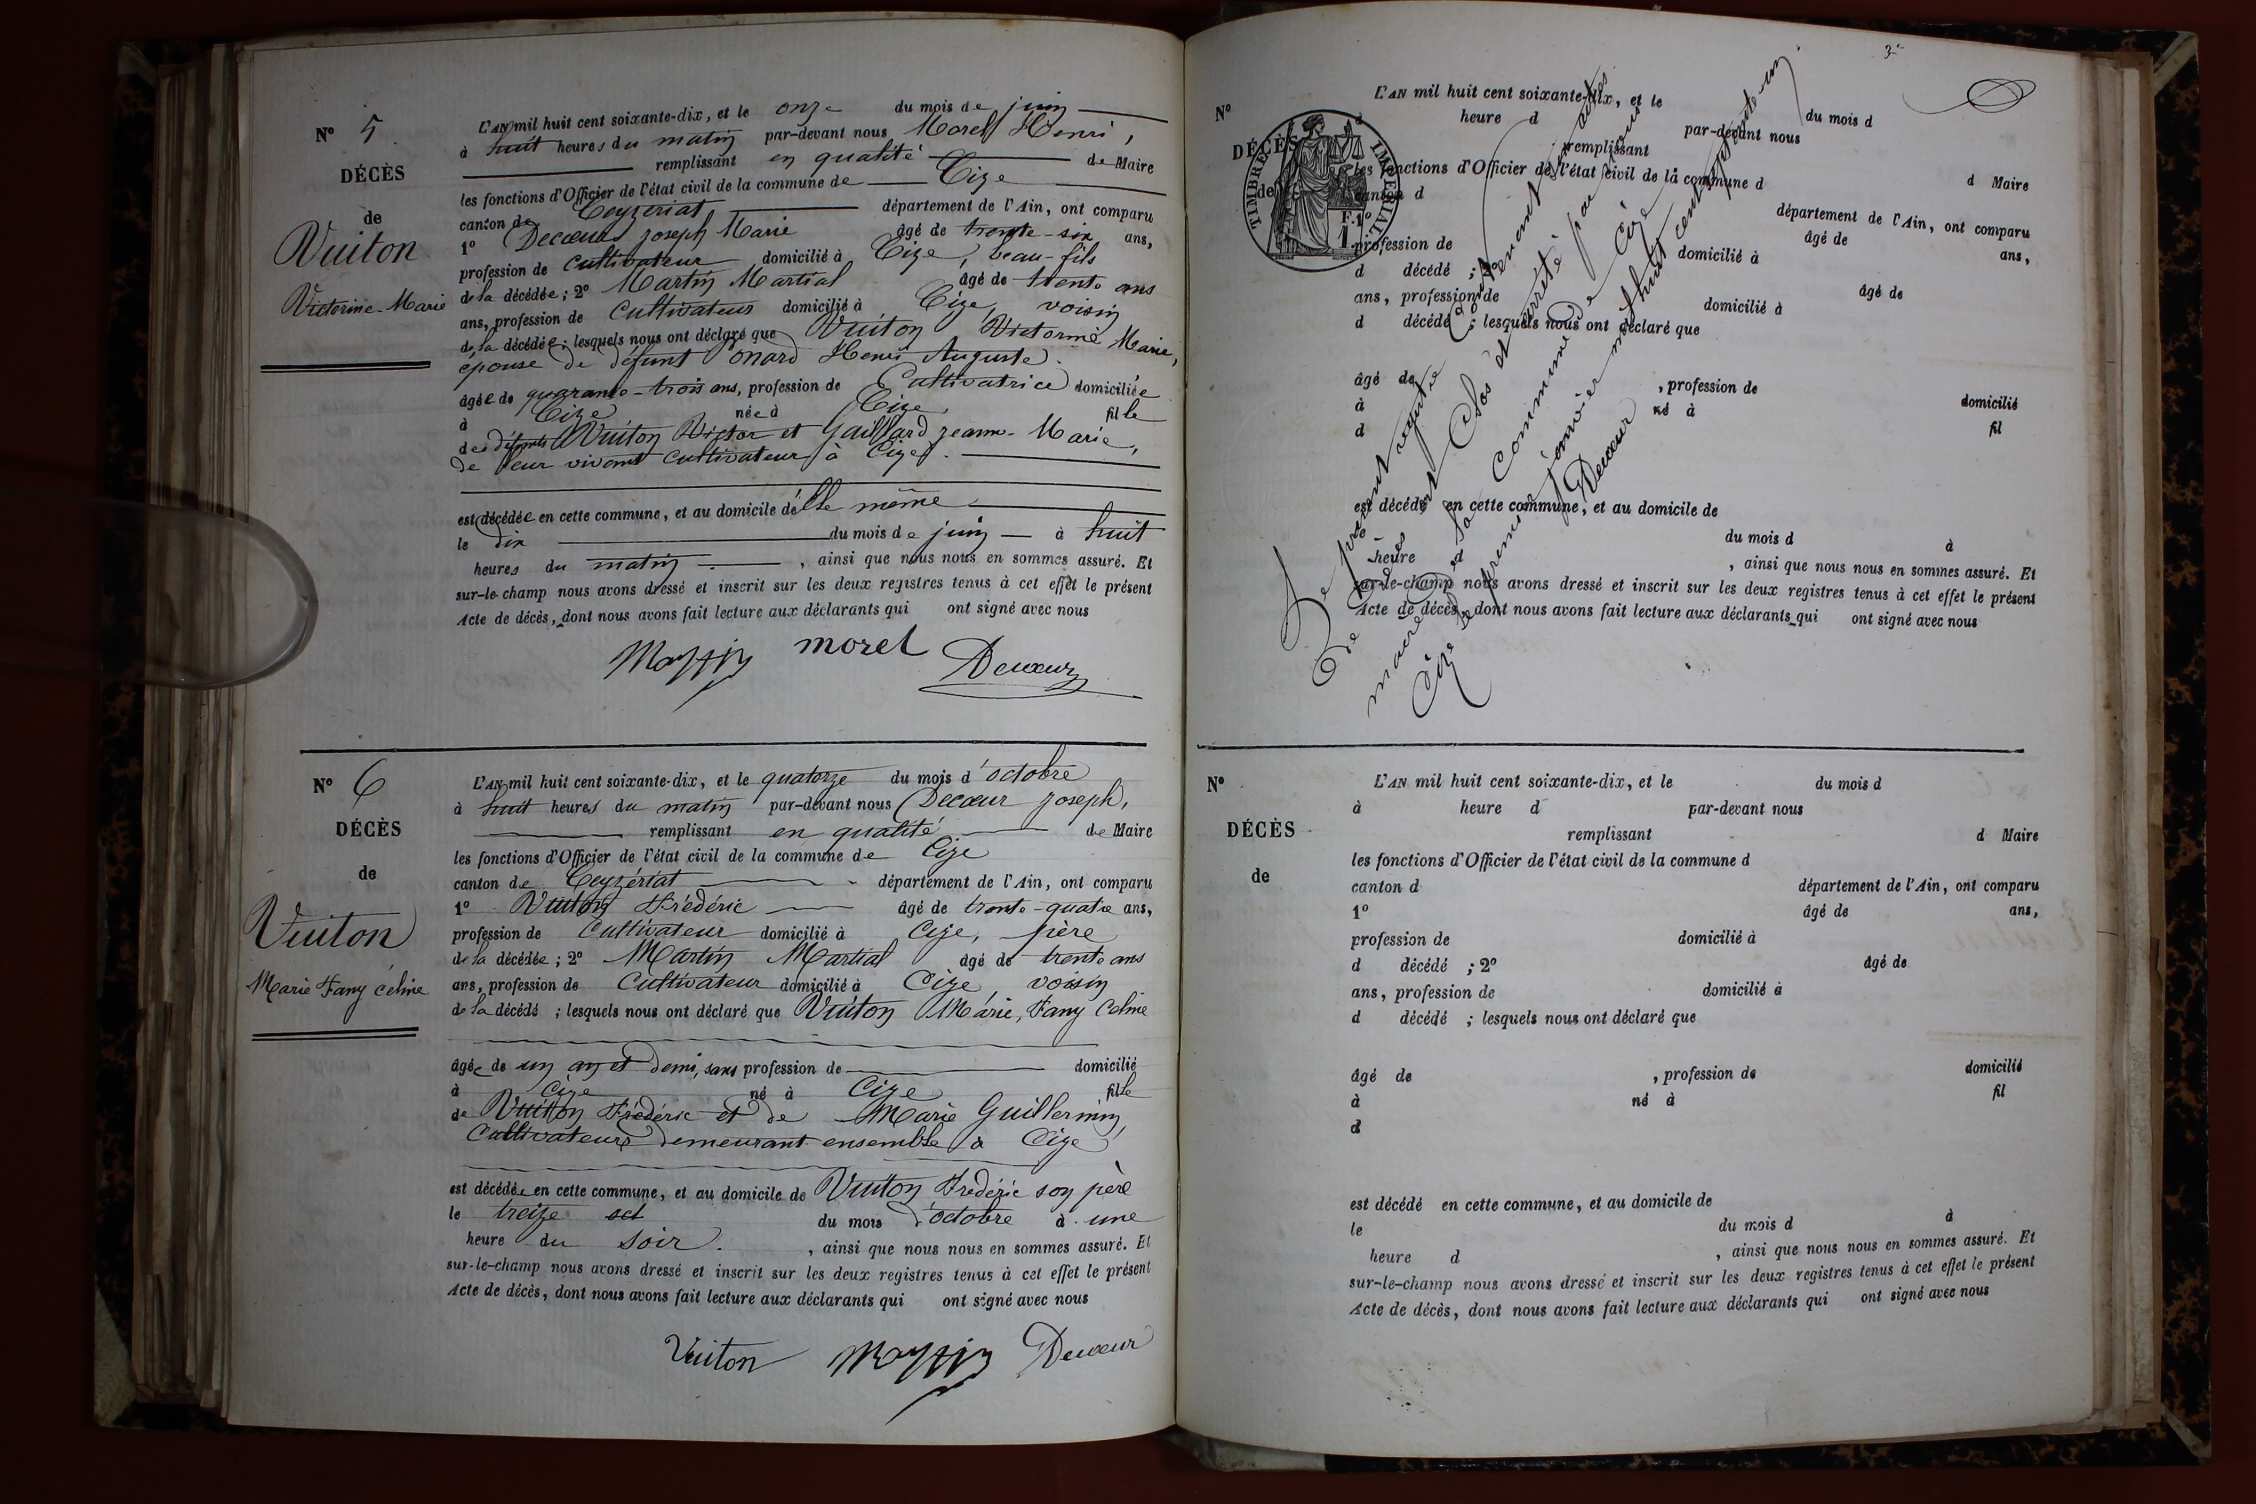 N° 5
DÉCÈS
de
Vuiton
Victorine-Marie
L'AN mil huit cent soixante-dix, et le onze du mois de juin
à huit heures du matin par-devant nous Morel Henri,
remplissant en qualité de Maire
les fonctions d'Officier de l'état civil de la commune de Cize
canton de Ceyzériat département de l'Ain, ont comparu
1° Decœur Joseph Marie âgé de trente-six ans,
profession de cultivateur domicilié à Cize, beau-fils
de la décédée ; 2° Martin Martial âgé de trente ans
ans, profession de cultivateur domicilié à Cize, voisin
de la décédée ; lesquels nous ont déclaré que Vuiton Victorine Marie,
épouse de défunt Onard Henri Auguste.
âgée de quarante-trois ans, profession de Cultivatrice domiciliée
à Cize née à Cize, fille
des défunts Vuiton Victor et Gaillard Jeanne-Marie,
de leur vivant cultivateurs à Cize.
est décédée en cette commune, et au domicile d'elle même
le dix du mois de juin à huit
heures du matin, ainsi que nous nous en sommes assuré. Et
sur-le-champ nous avons dressé et inscrit sur les deux registres tenus à cet effet le présent
Acte de décès, dont nous avons fait lecture aux déclarants qui ont signé avec nous
Martin morel Decœur
N° 6
DÉCÈS
de
Vuiton
Marie Fany Céline
L'AN mil huit cent soixante-dix, et le quatorze du mois d'octobre
à huit heures du matin par-devant nous Decœur Joseph,
remplissant en qualité de Maire
les fonctions d'Officier de l'état civil de la commune de Cize
canton de Ceyzériat département de l'Ain, ont comparu
1° Vuiton Frédéric âgé de trente-quatre ans,
profession de Cultivateur domicilié à Cize, père
de la décédée ; 2° Martin Martial âgé de trente ans
ans, profession de Cultivateur domicilié à Cize, voisin
de la décédé ; lesquels nous ont déclaré que Vuiton Marie, Fany Céline
âgée de un an et demi, sans profession de domicilié
à Cize né à Cize fille
de Vuiton Frédéric et de Marie Guillermin,
Cultivateurs demeurant ensemble à Cize
est décédée en cette commune, et au domicile de Vuiton Frédéric son père
le treize oct du mois d'octobre à une
heure du soir., ainsi que nous nous en sommes assuré. Et
sur-le-champ nous avons dressé et inscrit sur les deux registres tenus à cet effet le présent
Acte de décès, dont nous avons fait lecture aux déclarants qui ont signé avec nous
Vuiton Martin Decœur
3e
N°
DÉCÈS
de
TIMBRE IMPERIAL
1 F.
L'AN mil huit cent soixante-dix, et le du mois d
à heure d par-devant nous
remplissant d Maire
les fonctions d'Officier de l'état civil de la commune d
canton d département de l'Ain, ont comparu
1° âgé de ans,
profession de domicilié à
d décédé ; 2° âgé de
ans, profession de domicilié à
d décédé ; lesquels nous ont déclaré que
âgé de , profession de domicilié
à né à fil
d
est décédé en cette commune, et au domicile de
du mois d à
heure d , ainsi que nous nous en sommes assuré. Et
sur-le-champ nous avons dressé et inscrit sur les deux registres tenus à cet effet le présent
Acte de décès, dont nous avons fait lecture aux déclarants qui ont signé avec nous
Le présent registre Contenant six actes
de Décès est Clos et arrêté par nous
maire de la Commune de Cize
Cize le premier janvier mil huit cent soixante-onze
Decœur
N°
DÉCÈS
de
L'AN mil huit cent soixante-dix, et le du mois d
à heure d par-devant nous
remplissant d Maire
les fonctions d'Officier de l'état civil de la commune d
canton d département de l'Ain, ont comparu
1° âgé de ans,
profession de domicilié à
d décédé ; 2° âgé de
ans, profession de domicilié à
d décédé ; lesquels nous ont déclaré que
âgé de , profession de domicilié
à né à fil
d
est décédé en cette commune, et au domicile de
le du mois d à
heure d , ainsi que nous nous en sommes assuré. Et
sur-le-champ nous avons dressé et inscrit sur les deux registres tenus à cet effet le présent
Acte de décès, dont nous avons fait lecture aux déclarants qui ont signé avec nous